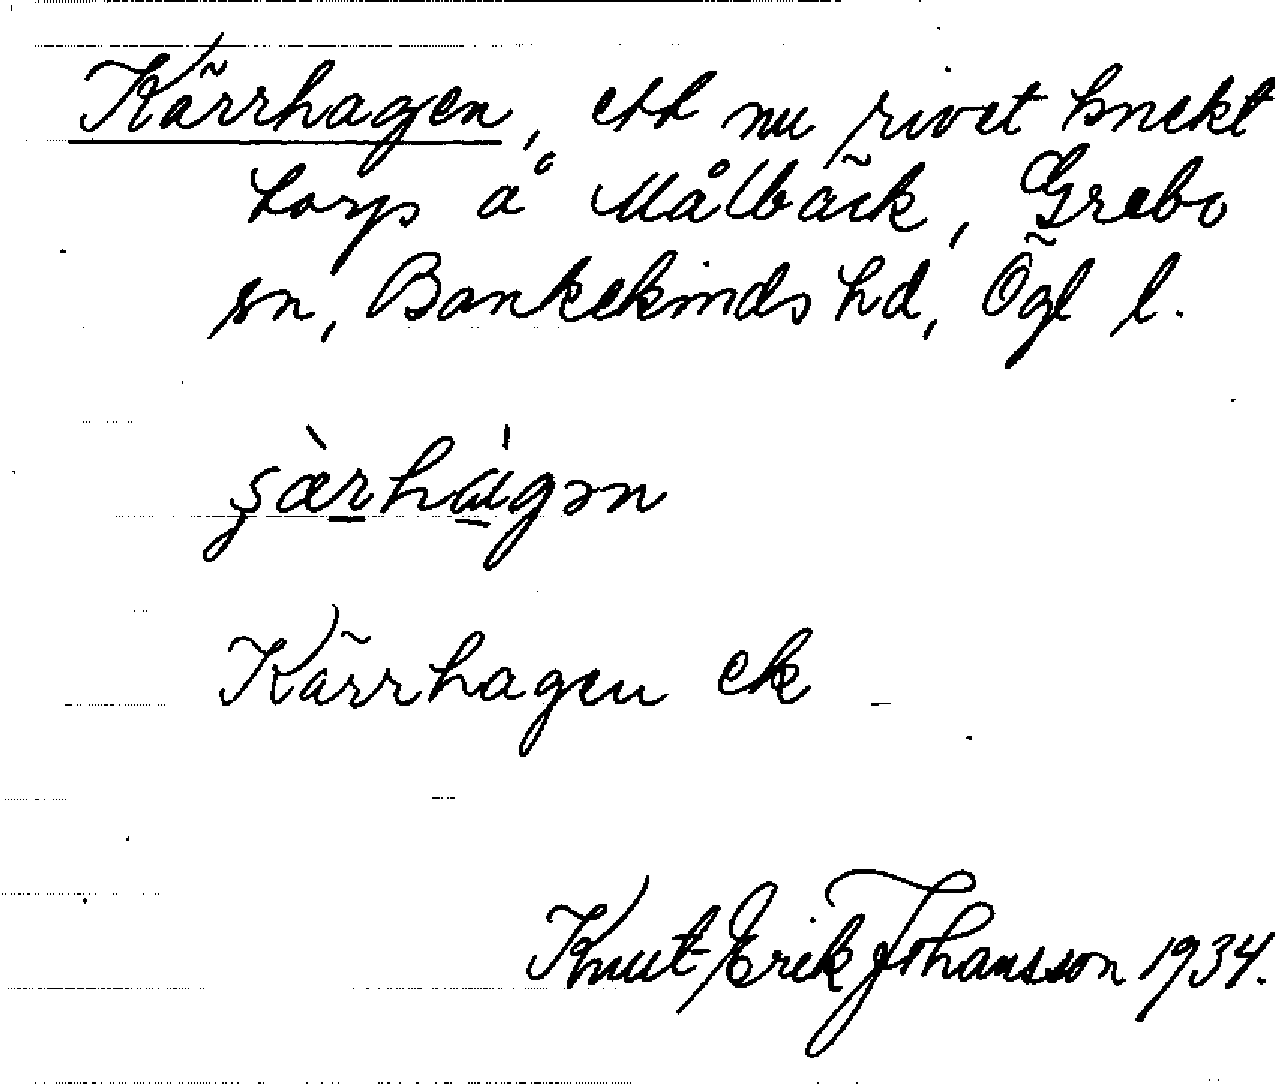 Kärrhagen, ett nu rivet knekt
torp å Målbäck, Grebo
sn, Bankekinds hd, Ögl l.
Kärrhagen ek
Knut Erik Johansson 1934.